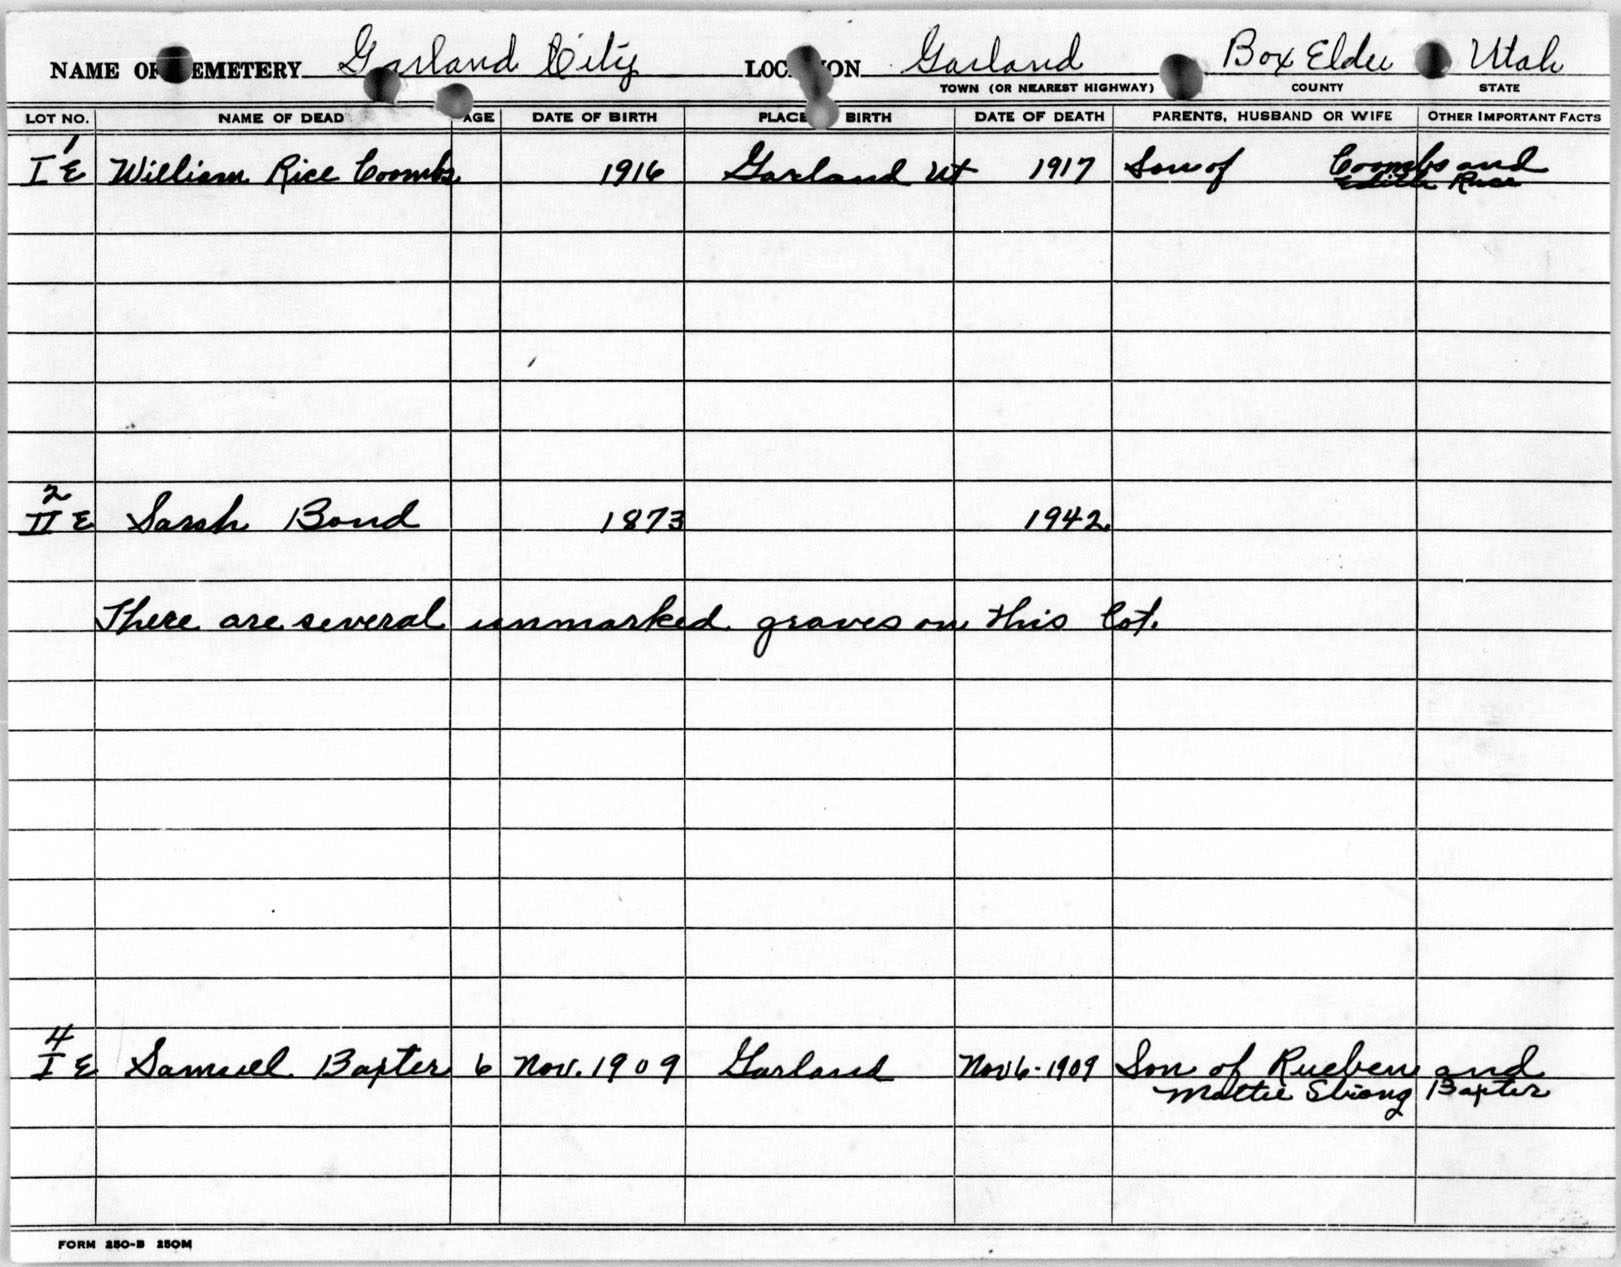 NAME OF CEMETERY Garland City LOCATION Garland Box Elder Utah
TOWN (OR NEAREST HIGHWAY) COUNTY STATE
LOT NO. NAME OF DEAD AGE DATE OF BIRTH PLACE BIRTH DATE OF DEATH PARENTS, HUSBAND OR WIFE OTHER IMPORTANT FACTS
1
I E William Rice Coombs 1916 Garland Ut 1917 Son of Coombs and
Edith Rice
2
II E Sarah Bond 1873 1942
There are several unmarked graves on this lot.
4
I E Samuel Baxter 6 Nov. 1909 Garland Nov 6-1909 Son of Rueben and
Mattie Strong Baxter
FORM 250-B 250M